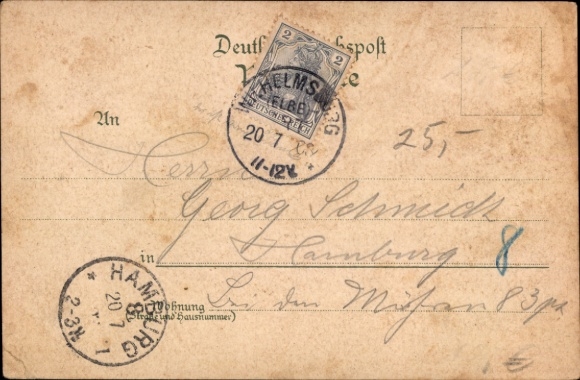 Deut spost
2 2
DEUTSCHES REICH
HELMS RG
(ELBE)
20 7
11-12V
An
25,-
Herrn
Georg Schmidt
in Hamburg 8
Wohnung
(Straße und Hausnummer)
Bei den 83
HAMBURG 1
8
20 7
2-3 N
*